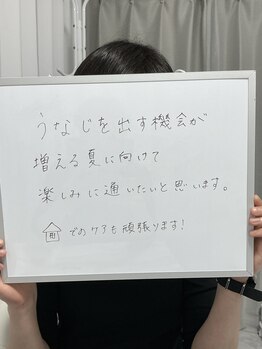 うなじを出す機会が
増える夏に向けて
楽しみに通いたいと思います。
でのケアも頑張ります!